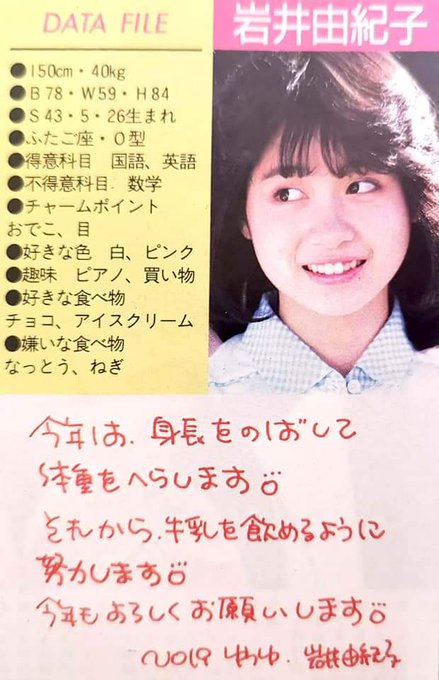 DATA FILE
岩井由紀子
●150cm・40kg
●B78・W59・H84
●S43・5・26生まれ
●ふたご座・O型
●得意科目 国語、英語
●不得意科目 数学
●チャームポイント
おでこ、目
●好きな色 白、ピンク
●趣味 ピアノ、買い物
●好きな食べ物
チョコ、アイスクリーム
●嫌いな食べ物
なっとう、ねぎ
今年は、身長をのばして
体重をへらします
それから、牛乳を飲めるように
努力します
今年もよろしくお願いします
No19 ゆうゆ.岩井由紀子